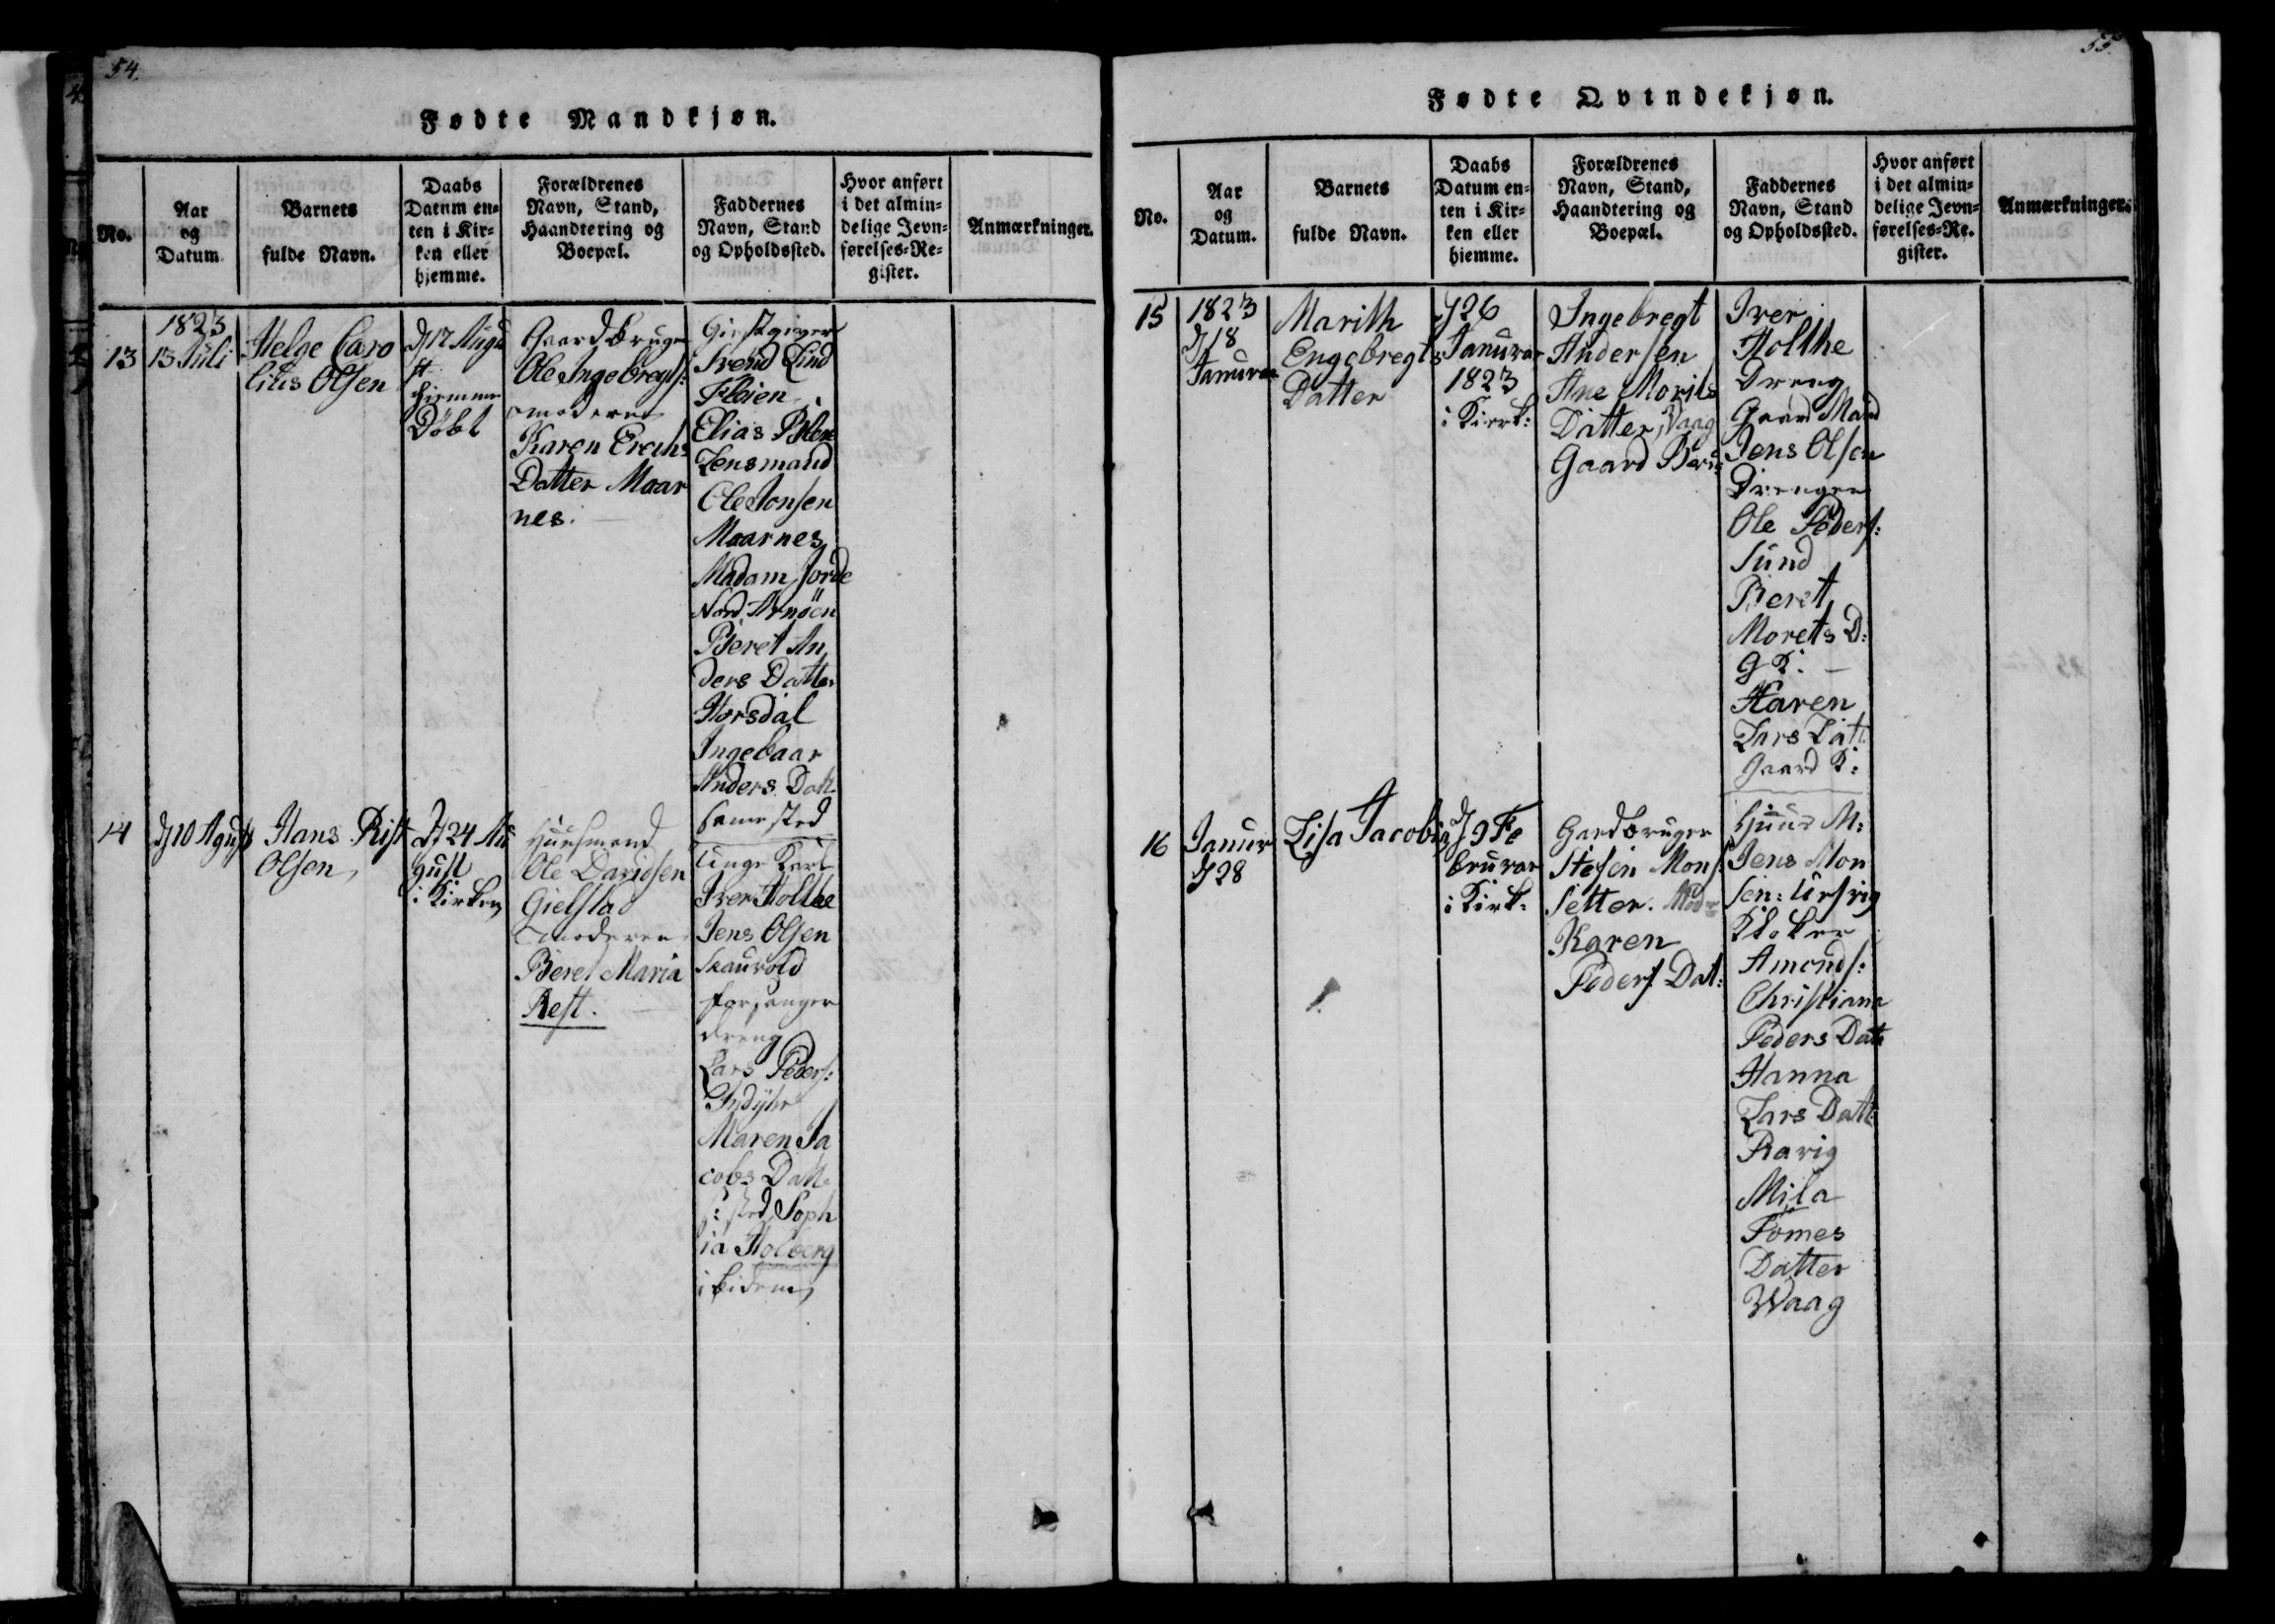 54.
Fødte Mandkjøn.
No.
Aar
og
Datum
Barnets
fulde Navn.
Daabs
Datum en-
ten i Kir-
ken eller
hjemme.
Forældrenes
Navn, Stand,
Haandtering og
Boepæl.
Faddernes
Navn, Stand
og Opholdssted.
Hvor anført
i det almin-
delige Jevn-
førelses-Re-
gister.
Anmærkninger.
13
1823
13 Juli
Helge Caro
lius Olsen
17 Augu
st
hiemme
Döbt
Gaardbruger
Ole Ingebregts:
moderen
Karen Erechs
Datter Maar
nes.
Giestgiver
Svend Lind
Kloien
Elias
Lensmand
Ole Jonsen
Maarnes
Madam Jorde
Nord Arnöen
Beret An
ders Datter
Horsdal
Ingebaar
Anders Datt
samested
14
10 August
Hans Rist
Olsen
24 Au
gust
i Kirken
Huusmand
Ole Davidsen
Gielstad
moderen
Beret Maria
Rest.
unge Karl
Iver Holthe
Jens Olsen
Skauvold
forsanger
dreng
Lars Peders:
Indyhr
Maren Ja
cobs Datt:
s: sted Soph
ia Holberg
ibidem
55.
Fødte Qvindekjøn.
No.
Aar
og
Datum.
Barnets
fulde Navn.
Daabs
Datum en-
ten i Kir-
ken eller
hjemme.
Forældrenes
Navn, Stand,
Haandtering og
Boepæl.
Faddernes
Navn, Stand
og Opholdssted.
Hvor anført
i det almin-
delige Jevn-
førelses-Re-
gister.
Anmærkninger.
15
1823
18
Januvar
Marith
Engebregts
Datter
26
Januvar
1823
i Kirk:
Ingebregt
Andersen
Ane Morits
Datter, Vaag
Gaard Bru:
Iver
Holthe
Dreng
Gaard Mand
Jens Olsen
Drengen
Ole Peders:
Sund
Beret
Morets D:
G K:
Karen
Lars Datt
Gaard K:
16
Januar
28
Lisa Jacobi
9 Fe
bruvar
i Kirk:
Gardbruger
Stefen Mons
Setter. Mod
Karen
Peders Dat:
Huus M:
Jens Mon
sen:
Kloker
Amonds:
Christiana
Peders Datt
Hanna
Lars Datt
Rarig
Mila
Tomes
Datter
Waag